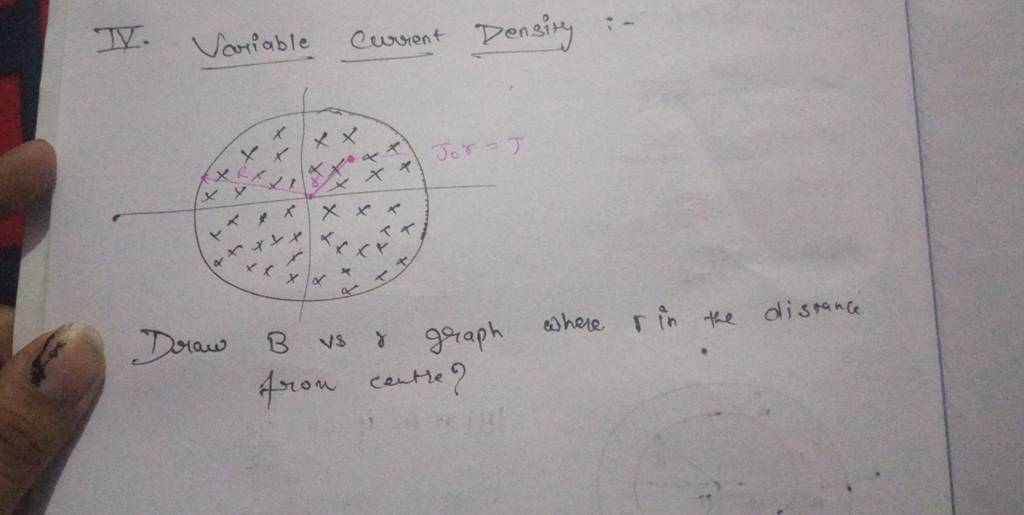 IV. Variable Current Density :-
J₀r = J
R
r
Draw B vs r graph where r in the distance
from centre?